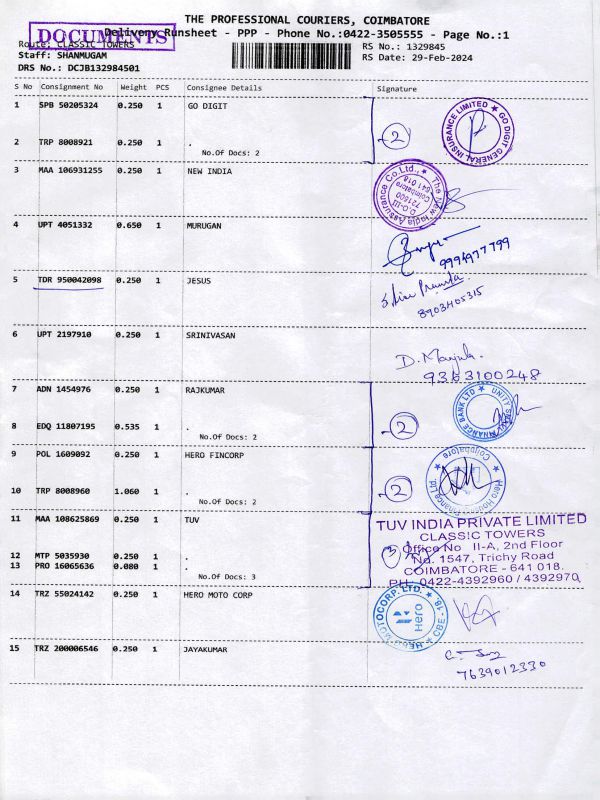 THE PROFESSIONAL COURIERS, COIMBATORE
DOCUMENTS
Delivery Runsheet - PPP - Phone No.:0422-3505555 - Page No.:1
Route: CLASSIC TOWERS
RS No.: 1329845
Staff: SHANMUGAM
RS Date: 29-Feb-2024
DRS No.: DCJB132984501
S No Consignment No Weight PCS Consignee Details Signature
1 SPB 50205324 0.250 1 GO DIGIT
GO DIGIT GENERAL INSURANCE LIMITED
2
2 TRP 8008921 0.250 1 .
No.Of Docs: 2
3 MAA 106931255 0.250 1 NEW INDIA
The New India Assurance Co.Ltd.,
D.O-III
721600
Coimbatore
641 018
4 UPT 4051332 0.650 1 MURUGAN
9994977799
5 TDR 950042098 0.250 1 JESUS
8903405315
6 UPT 2197910 0.250 1 SRINIVASAN
D. Manjula.
9363100248
7 ADN 1454976 0.250 1 RAJKUMAR
UNITY SMALL FINANCE BANK LTD
2
8 EDQ 11807195 0.535 1 .
No.Of Docs: 2
9 POL 1609092 0.250 1 HERO FINCORP
Coimbatore
Hero Housing Finance Ltd
2
10 TRP 8008960 1.060 1 .
No.Of Docs: 2
11 MAA 108625869 0.250 1 TUV
TUV INDIA PRIVATE LIMITED
CLASSIC TOWERS
Office No II-A, 2nd Floor
No. 1547, Trichy Road
COIMBATORE - 641 018.
PH: 0422-4392960 / 4392970
3
12 MTP 5035930 0.250 1 .
13 PRO 16065636 0.080 1 .
No.Of Docs: 3
14 TRZ 55024142 0.250 1 HERO MOTO CORP
HERO MOTOCORP. LTD.
CBE - 18.
Hero
15 TRZ 200006546 0.250 1 JAYAKUMAR
7639012330